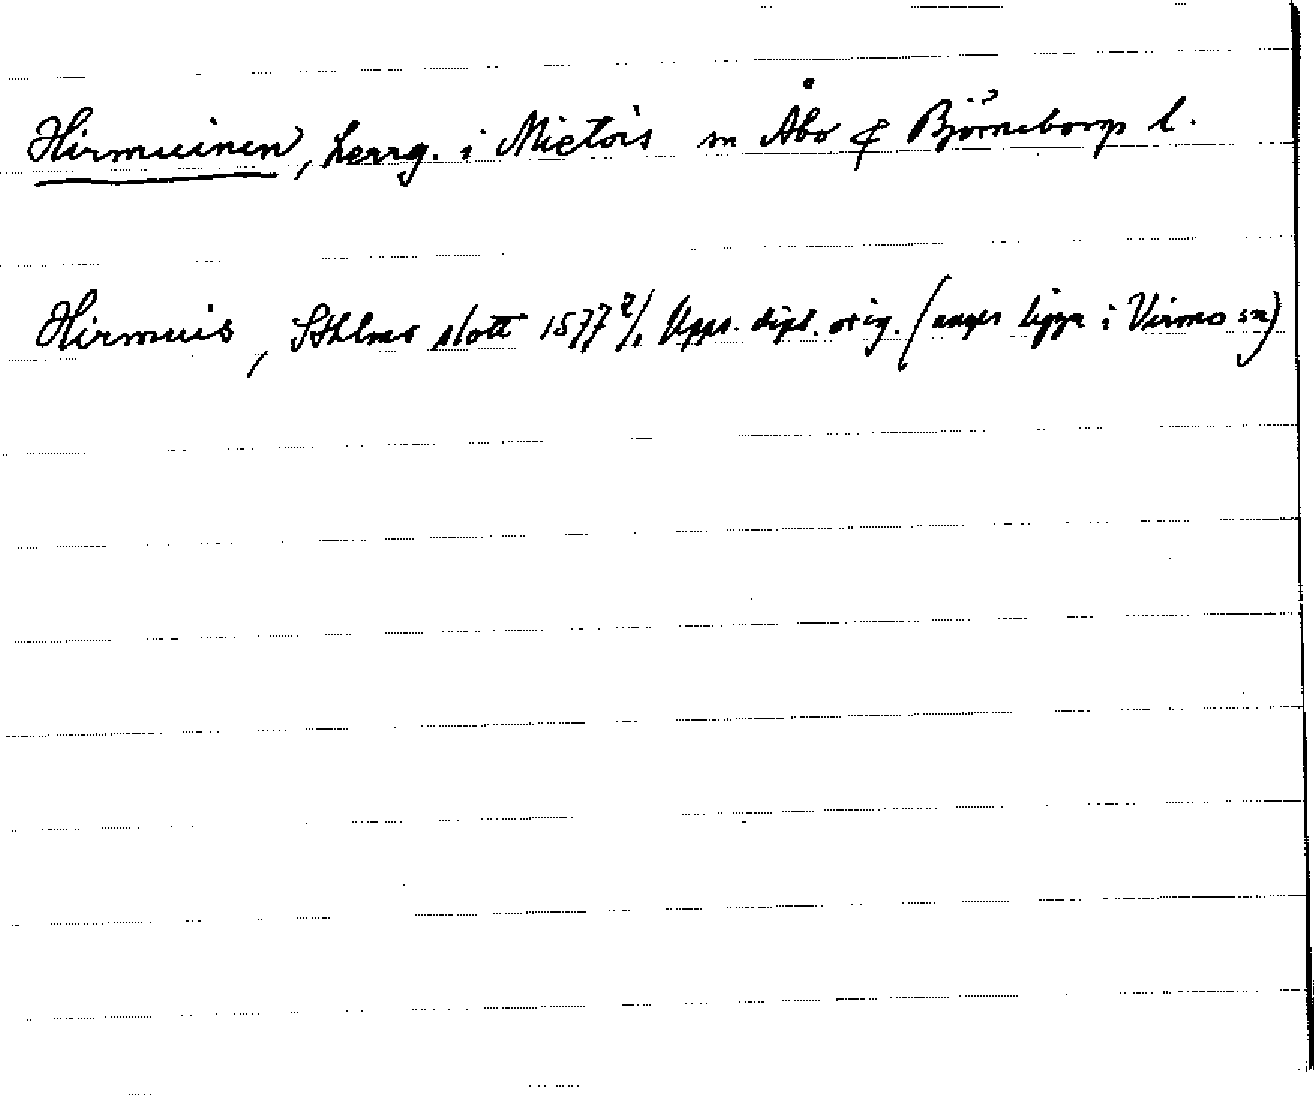 Hirmuinen, herrg. i Mietois sn Åbo & Björneborgs l.
Hirmuis, Sthlms slott 1577 2/1 Upps. dipl. orig. (anges ligga i Virmo sn)